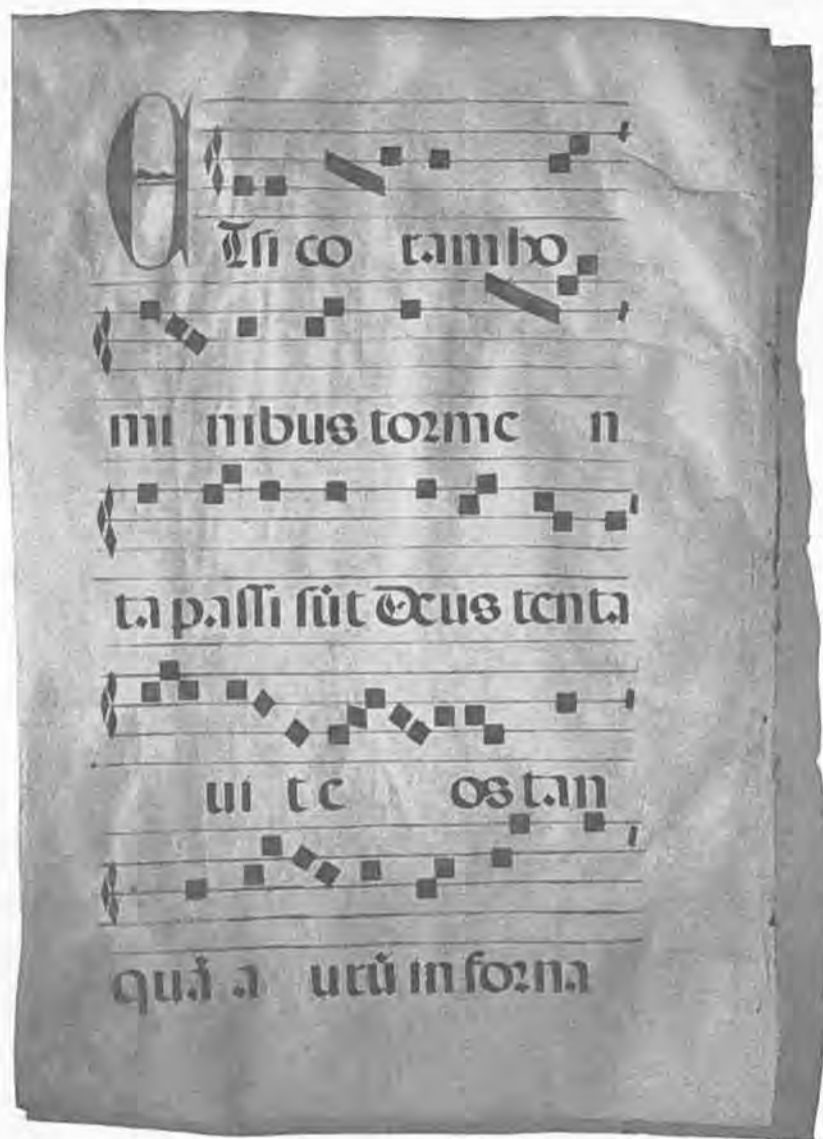 ETsi co ramho
mi nibus torme n
ta passi sūt Deus tenta
ui t e os tan
quā a urū in forna